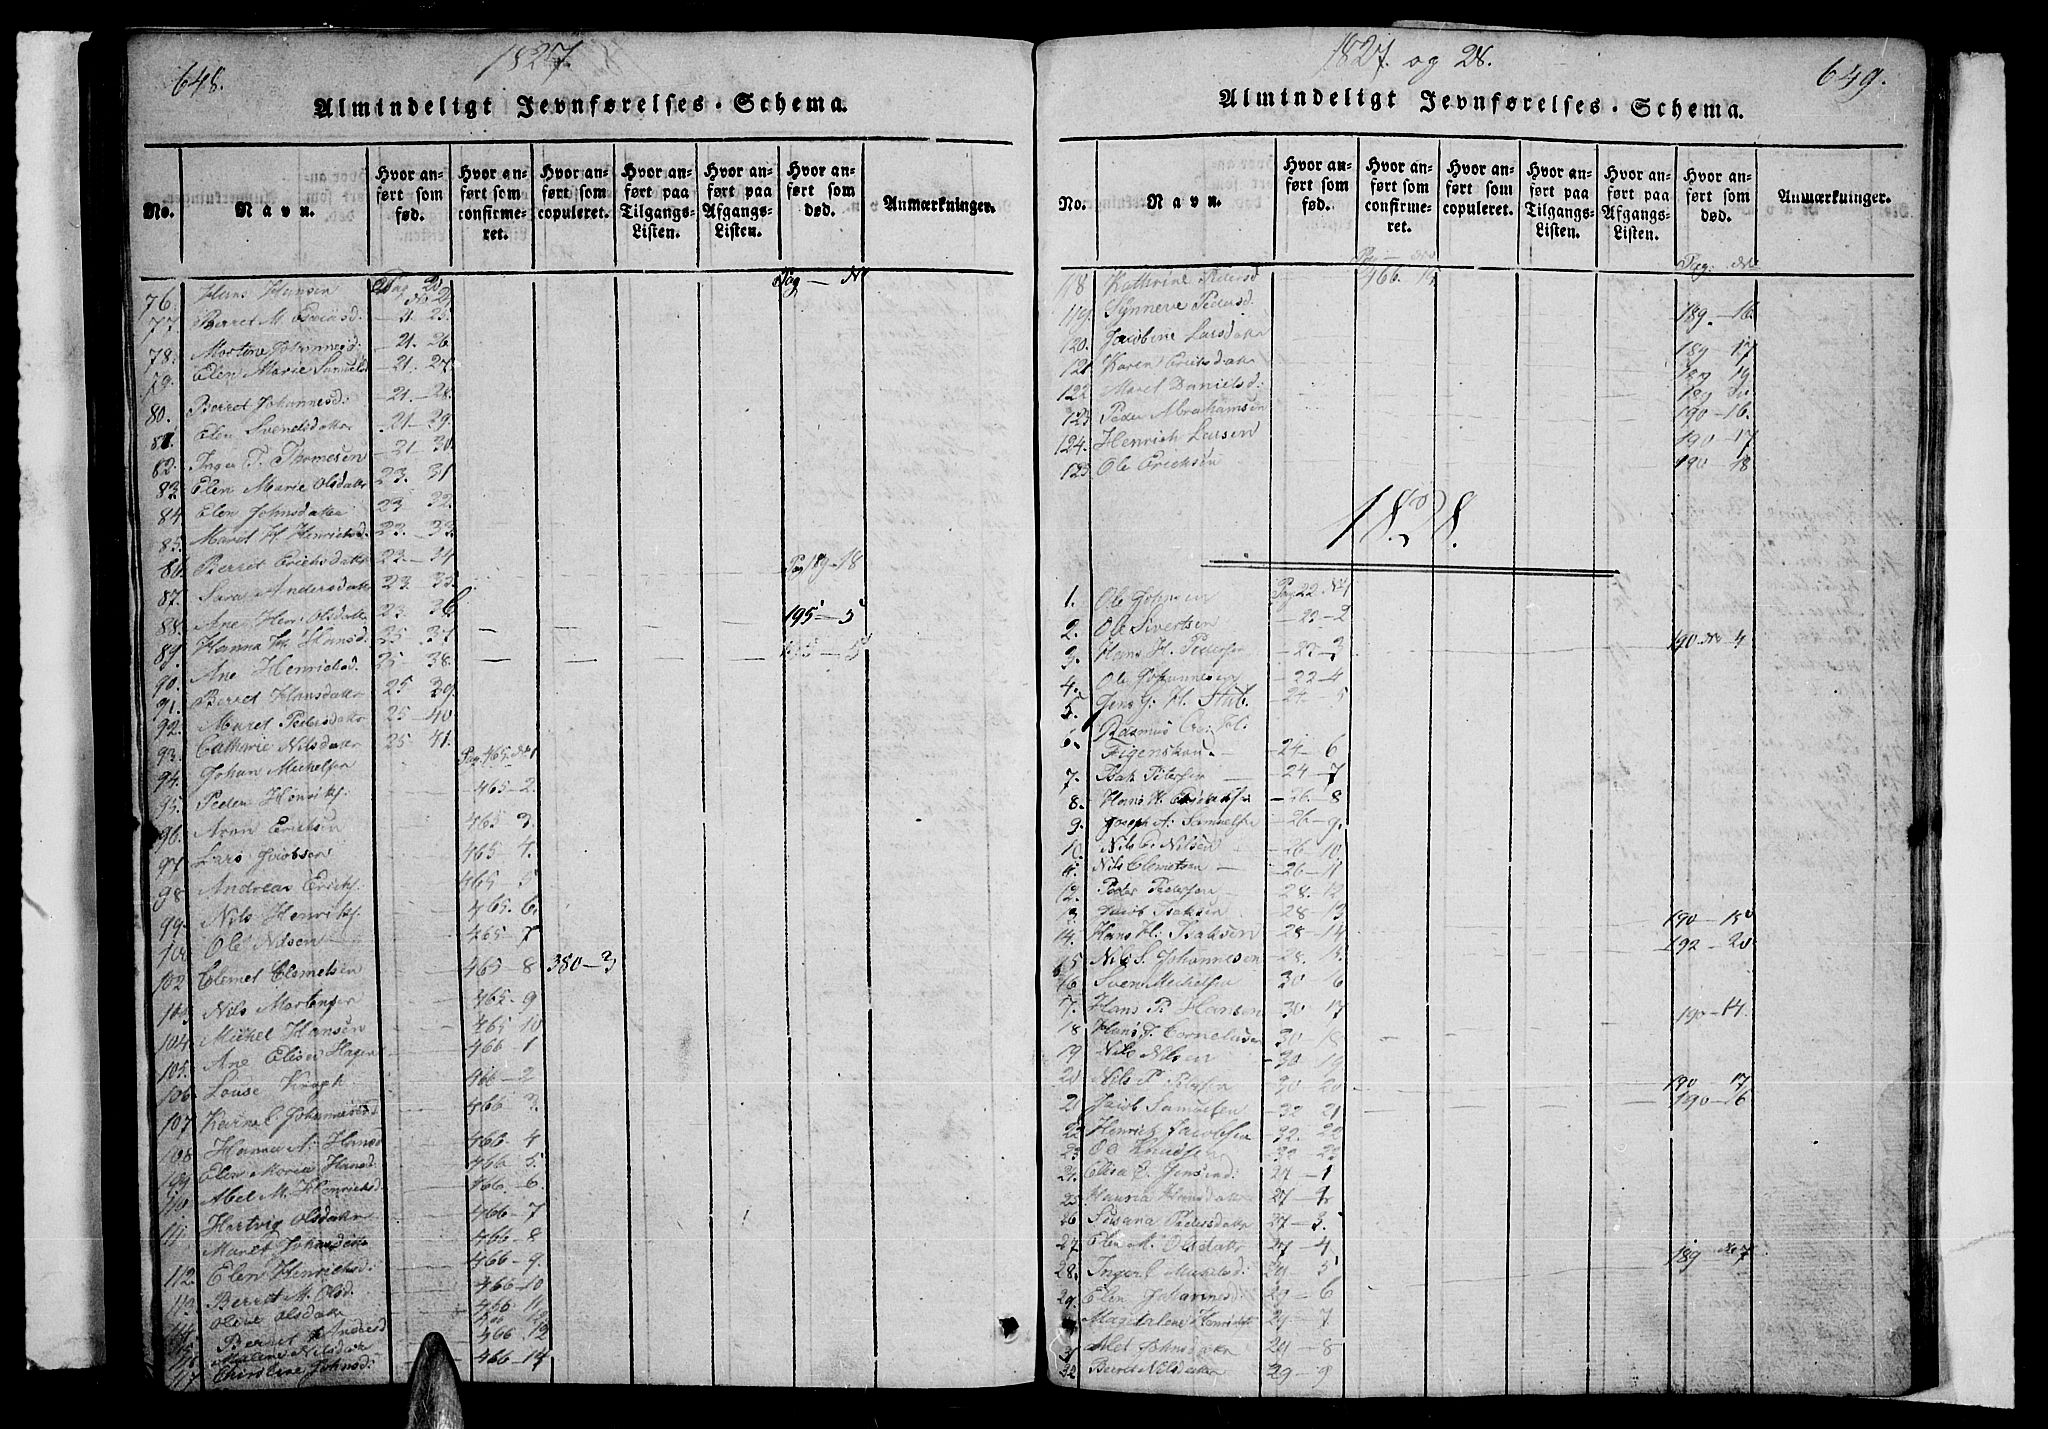 648.
1827.
Almindeligt Jevnførelses-Schema.
No.
Navn.
Hvor anført som fød.
Hvor anført som confirmeret.
Hvor anført som copuleret.
Hvor anført paa Tilgangs-Listen.
Hvor anført paa Afgangs-Listen.
Hvor anført som død.
Anmærkninger.
76. Hans Hansen Pag 20 No 24 Pag — N
77. Berret M. 21 25
78. Mortine Johannesd: 21. 26
79. Elen Marie Samuelsd 21. 27.
80. Berret Johannesd: 21. — 28.
81. Elen Svendsdatter 21 — 29
82. Inger P. Thomesen 21 — 30
83. Elen Marie Olsdatter 23. 31
84 Elen Johnsdatter 23 32
85. Maret H Henrichsd 23. — 33
86 Berret Erichsdatter 23 — 34 Pag 189 — 18
87. Sara Andersdatter 23. 35
88. Ane Hen: Olsdatter 23. 36 195 — 5
89. Hanna H. Hansd. 25 37 — — — —
90. Ane Henrichsd. 25 — 38. — — — —
91. Berret Hansdatter 25 39
92. Maret Pedersdatter 25 — 40
93. Cathrine Nilsdatter 25 41.
94. Johan Michelsen Pag. 465. No 1
95. Peder Henriks. 465 — 2.
96. Aron Ericksen 465 3.
97. Lars Jacobsen 465 4.
98 Andreas Ericks. 465 5
99. Nils Henriks. 465. 6.
100 Ole Nilsen 465 — 7
102 Clemet Clemetsen 465 — 8 380 — 3
103. Nils Mortensen 465 — 9
104. Michel Hansen 465 10
105. Ane Elisa Hagen 466 — 1
106. Louse Kragh 466 — 2
107 Karn C. Johannesd 466 3
108 Hanna A: Hansd 466. 4
109 Elen Maria Hansd. 466 5.
110 Abel M. Henrichsd 466. — 6.
111 Hartvig Olsdatter 466 — 7
Maret Johnsdatter 466 — 8
112. Elen Henrichsd: 466 — 9.
113. Berret M. Olsd. 466 — 10
Olene Olsdatter 466 — 11
114. Berret Andersd 466 12
Malene Nilsdatter 466. — 12
117 Christine Johnsd: 466 — 14
1827. og 28.
649.
Almindeligt Jevnførelses-Schema.
No.
Navn.
Hvor anført som fød.
Hvor anført som confirmeret.
Hvor anført som copuleret.
Hvor anført paa Tilgangs-Listen.
Hvor anført paa Afgangs-Listen.
Hvor anført som død.
Anmærkninger.
Pag — No Pag: No
118 Kathrine Pedersd 466. 15
119. Synneve Pedersd. 189. — 16.
120. Jacobine Larsdatter 189 — 17
121 Karen Erichsdatter 189 — 19
122. Maret Danielsd: 189
123. Peder Abrahamsen 190 — 16.
124. Henrich Larsen 190 — 17
125 Ole Erichsen 190 — 18
1828.
1. Ole Johnsen Pag 22. No 1
2. Ole Sivertsen — 22 — 2
3. Hans H. Pedersen — 22 — 3 190 No 4
4. Ole Johannesen — 22 — 4
5. Jens G. H. Stub. — 24 — 5
6. Rasmus
Figenskau — 24 — 6
7. Isak Petersen — 24 — 7
8. Hans N. — 26 — 8
9. Joseph A: Samuelsen — 26 — 9.
10 Nils C. Nilsen — 26 10
11. Nils Clemetsen — 26 — 11
12. Peder Pedersen — 28. 12
13. Jacob Isaksen — 28 — 13 190 — 15
14. Hans H: Isaksen — 28 — 14 192 — 20
15 Nils S. Johannesen — 28. 15.
16 Sven Michelsen 30 16
17. Hans P. Hansen 30 — 17 190 — 14.
18 Hans J. Cornelusen 30 18
19 Nils Nilsen — 30 19
20 Nils P. 30 20 190 — 17
21 Jacob Samuelsen 32 21 190 — 16
22 Henrik Jacobsen 32. 22
23. Ole Knudsen 32 23
24. Elisa C. Jensend: 27 — 1
25 Hansdatter 27 — 2
26 Susana Pedersdatter 27 — 3.
27. Elen M. Olsdatter 27 — 4 189 No 7
28. Inger C. Michelsd: 29 — 5
29. Elen Johannesd: 29 — 6
Magdalene Henrichs 29 — 7
31 Johnsdatter 29 — 8
32 Berret Nilsdatter 29 — 9